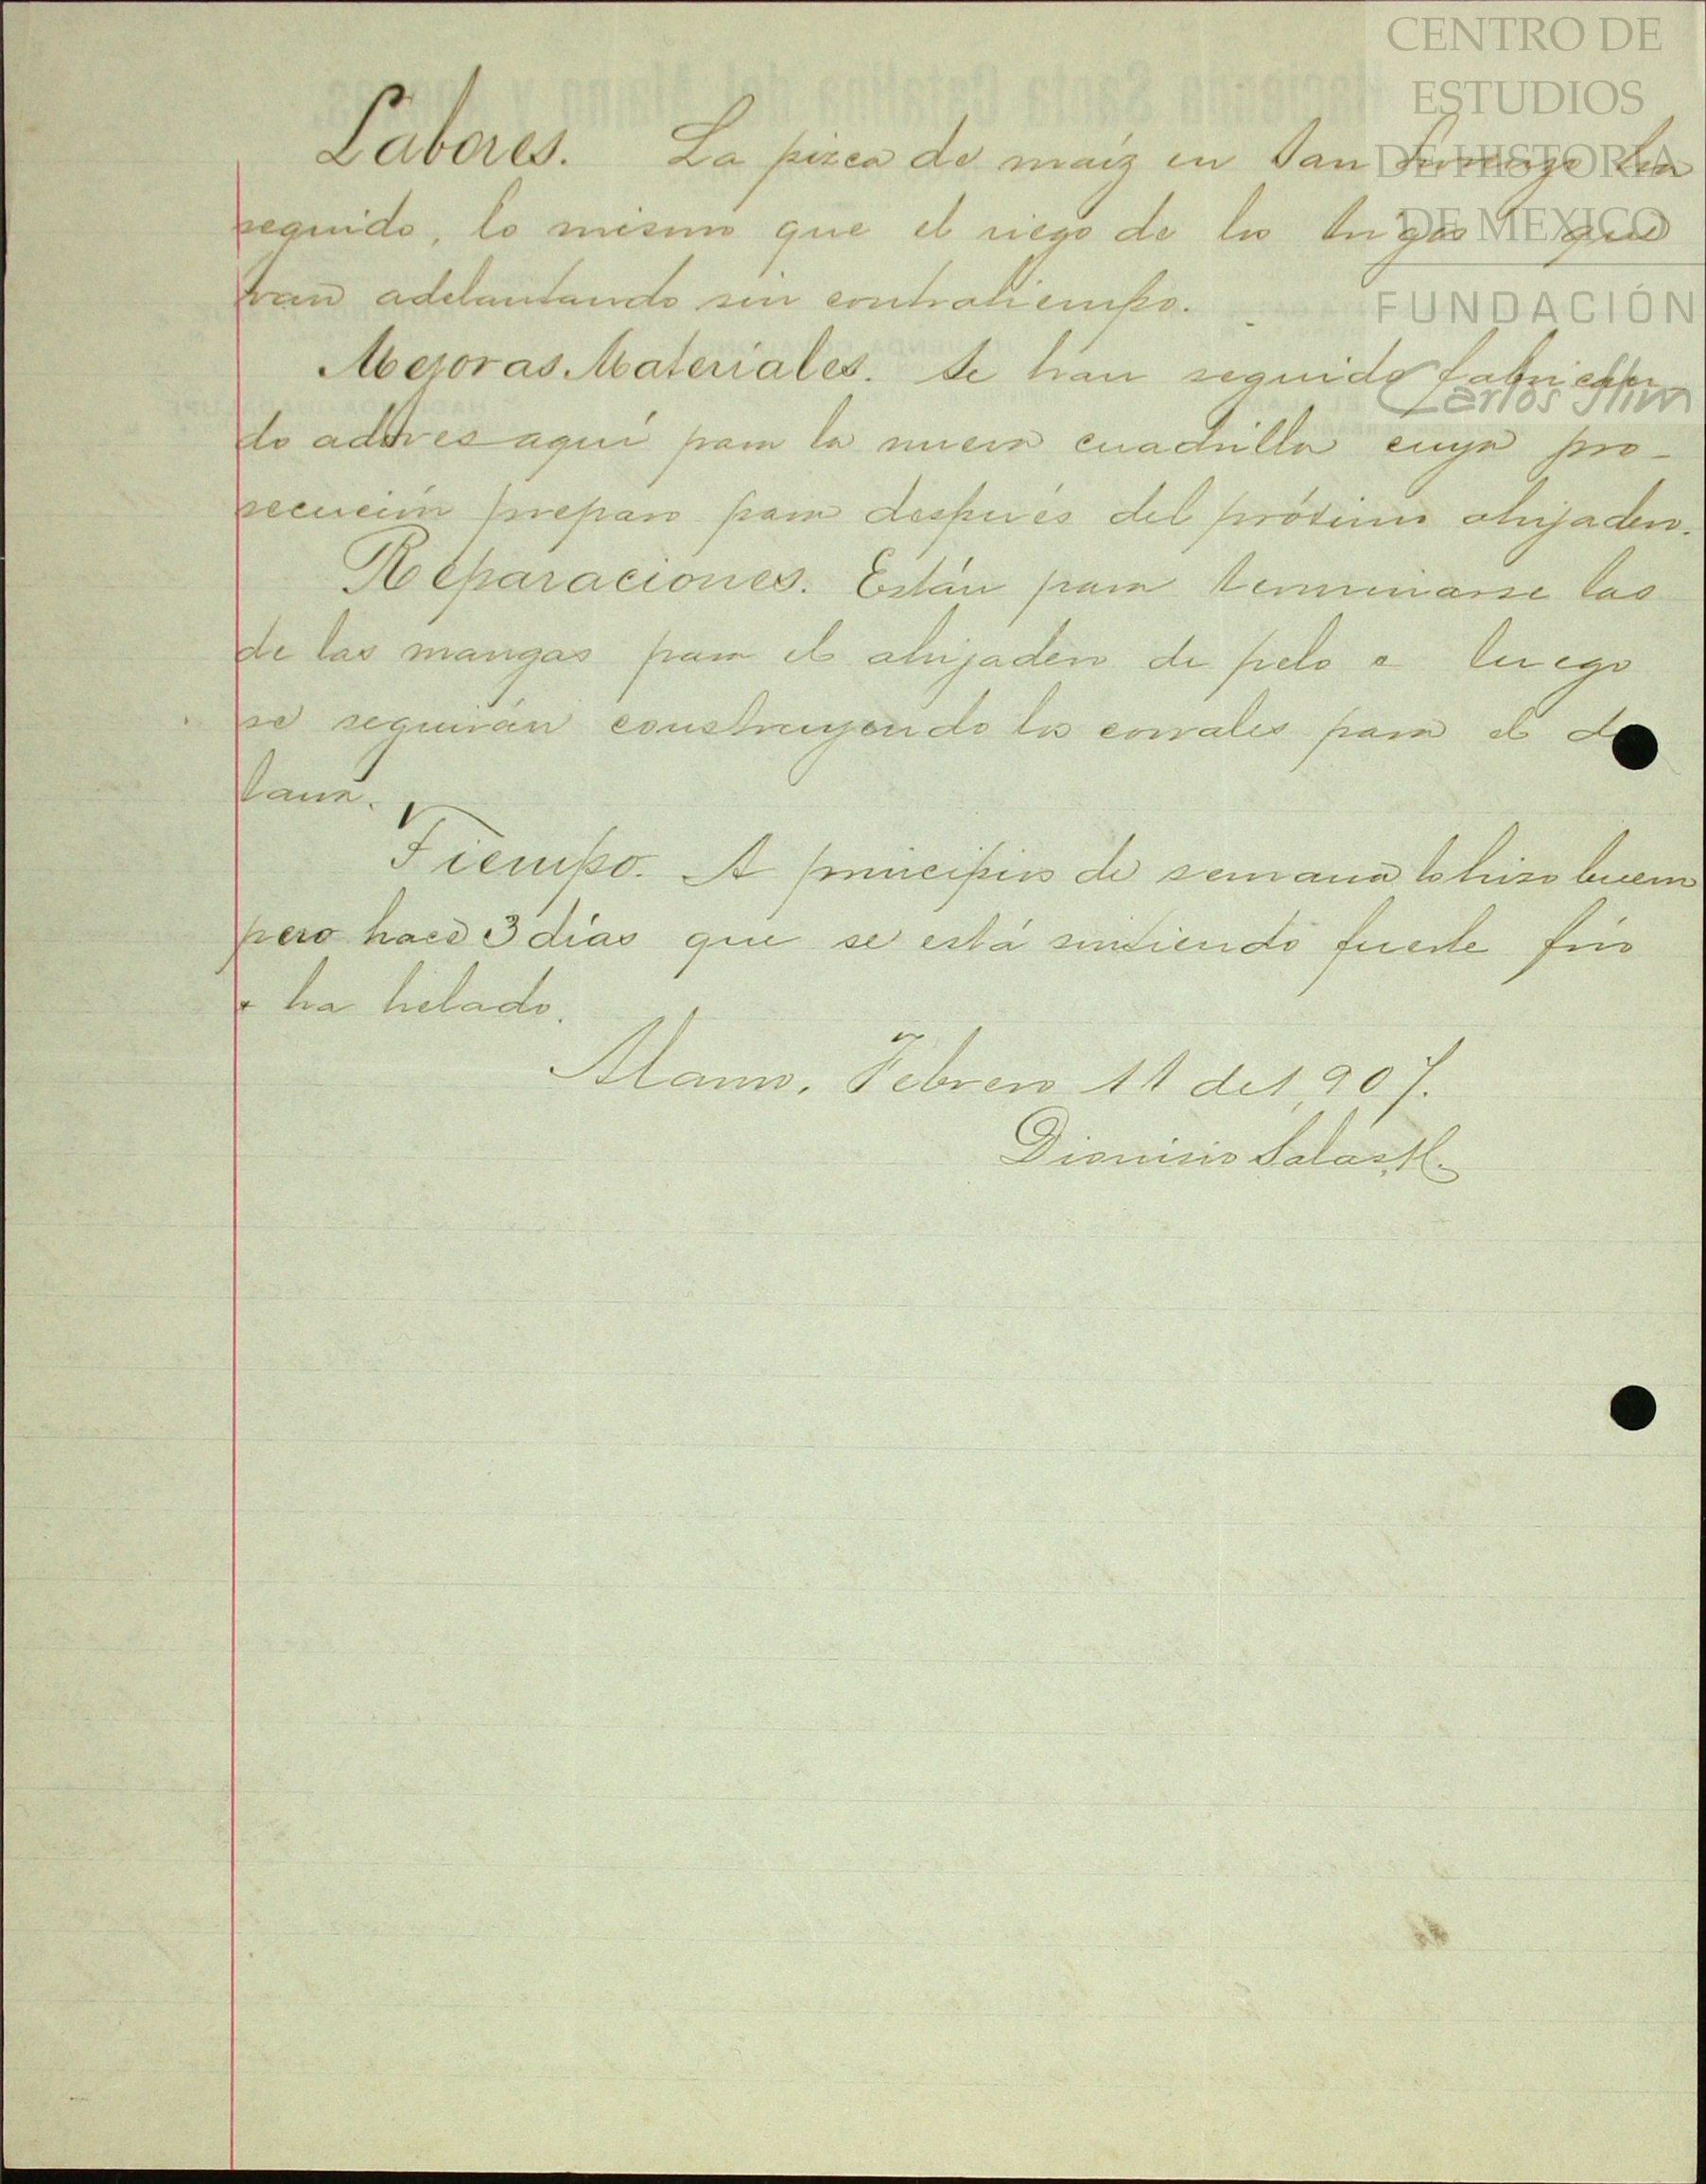 CENTRO DE
ESTUDIOS
DE HISTORIA
DE MEXICO
FUNDACIÓN
Carlos Slim
Labores. La pizca de maíz en San Lorenzo ha
seguido, lo mismo que el riego de los trigos que
van adelantando sin contratiempo.
Mejoras Materiales. Se han seguido fabrican
do adobes aquí para la nueva cuadrilla cuya pro-
secución preparo para después del próximo ahijadero.
Reparaciones. Están para terminarse las
de las mangas para el ahijadero de pelo a luego
se seguirán construyendo los corrales para el de
lana.
Tiempo. A principios de semana lo hizo bueno
pero hace 3 días que se está sintiendo fuerte frío
ha helado.
Alamo, Febrero 11 de 1,907.
Dionisio Salas H.